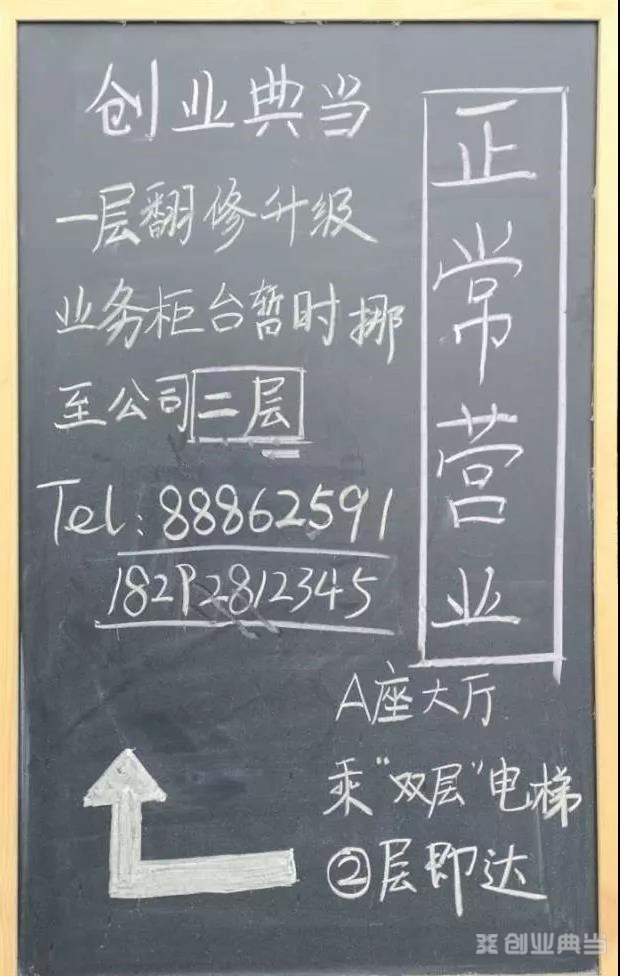 创业典当
一层翻修升级
业务柜台暂时挪
至公司二层
Tel:88862591
18292812345
正常营业
A座大厅
乘“双层”电梯
②层即达
创业典当